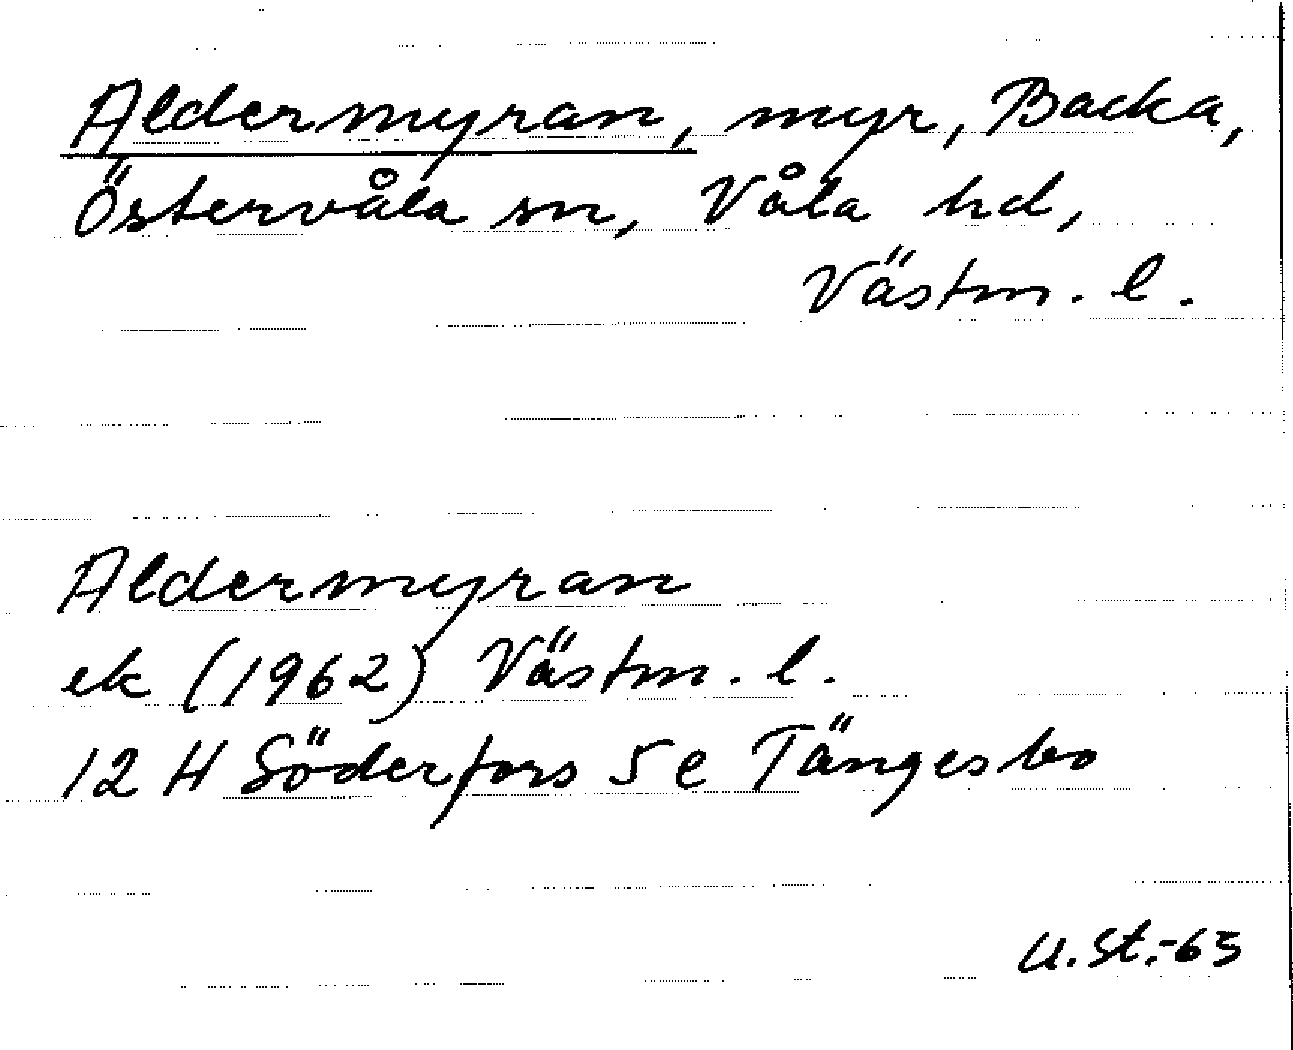 Aldermyran, myr, Backa,
Östervåla sn, Våla hd,
Västm. l.
Aldermyran
ek (1962) Västm. l.
12 H Söderfors 5 e Tängesbo
U. St.-65